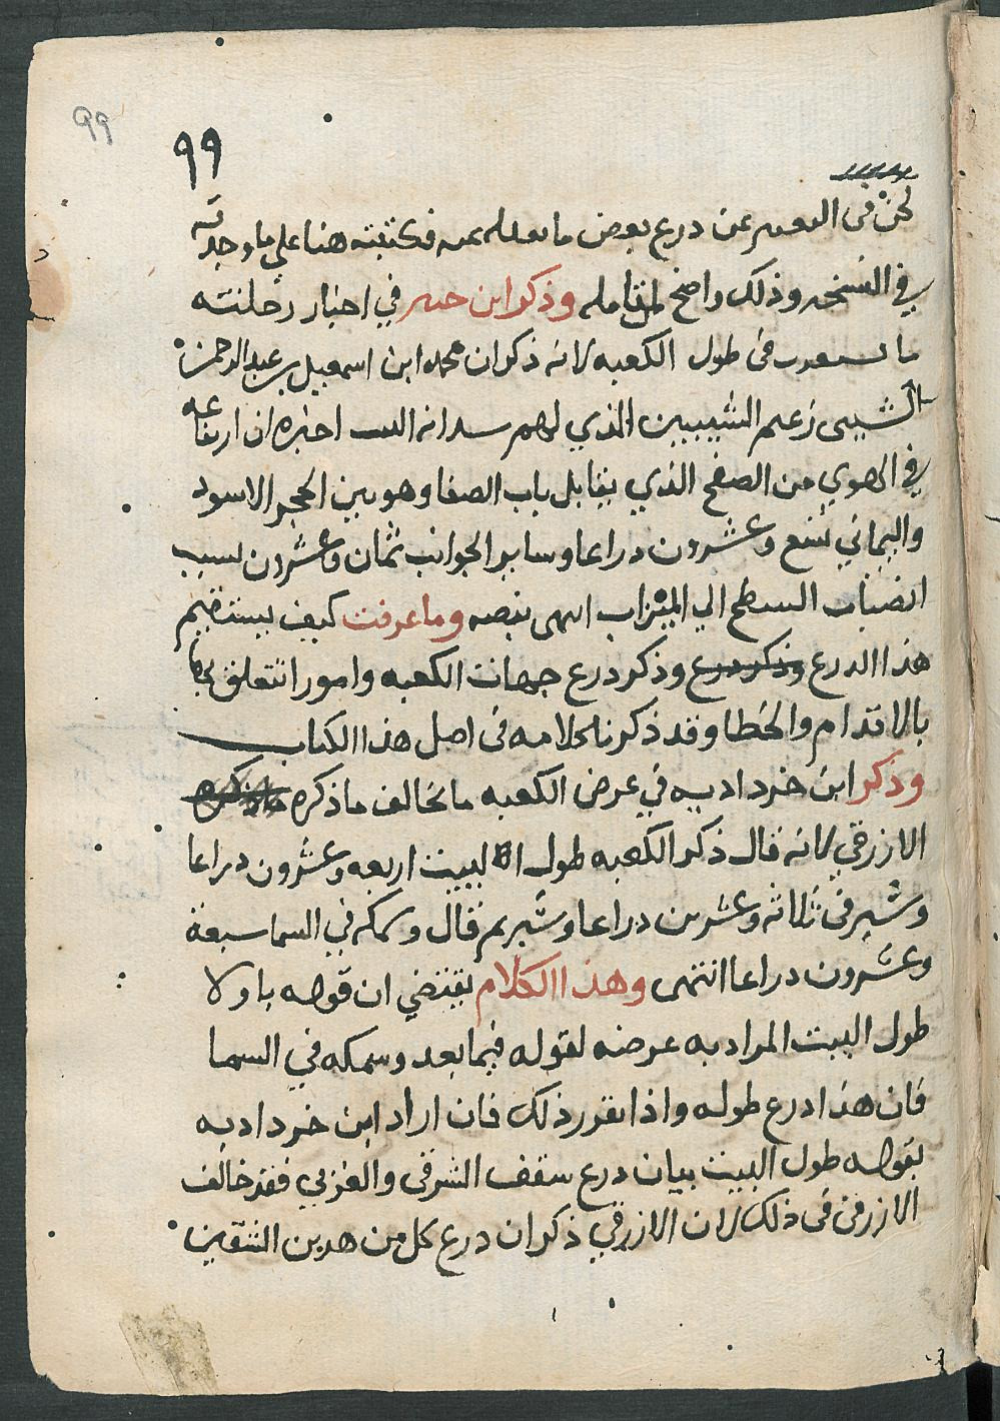 99
٩٩
لحن في التعبير عن درع بعض ما نقله عنه فكتبته هنا علي ما وجدته
في النسخه وذلك واضح لمن تامله وذكر ابن جبير في اخبار رحلته
ما في طول الكعبه لانه ذكر ان محمد ابن اسمعيل بن عبد الرحمن
الشيبى زعيم الشيبيين الذي لهم سدانه البيت اخبره ان ارتفاعه
في الهوي من الصفح الذي يقابل باب الصفا وهو بين الحجر الاسود
واليماني تسع وعشرون دراعا وساير الجوانب ثمان وعشرون بسبب
انصباب السطح الي الميزاب انتهى بنصه وما عرفت كيف يستقيم
هذا الدرع وذكر درع وذكر درع جهات الكعبه وامورا تتعلق بها
بالاقدام والخطا وقد ذكرنا كلامه في اصل هذا الكتاب
وذكر ابن خرداديه في عرض الكعبه ما يخالف ما ذكره
الازرقي لانه قال ذكر الكعبه طول البيت اربعه وعشرون دراعا
وشبر في ثلاثه وعشرين دراعا وشبر ثم قال وسمكه في السما سبعة
وعشرون دراعا انتهى وهذا الكلام يقتضي ان قوله باولا
طول البيت المراد به عرضه لقوله فيما بعد وسمكه في السما
فان هذا درع طوله واذا تقرر ذلك فان اراد ابن خرداديه
بقوله طول البيت بيان درع سقف الشرقى والغربي فقد خالف
الازرقى في ذلك لان الازرقي ذكر ان درع كل من هدين الشقين